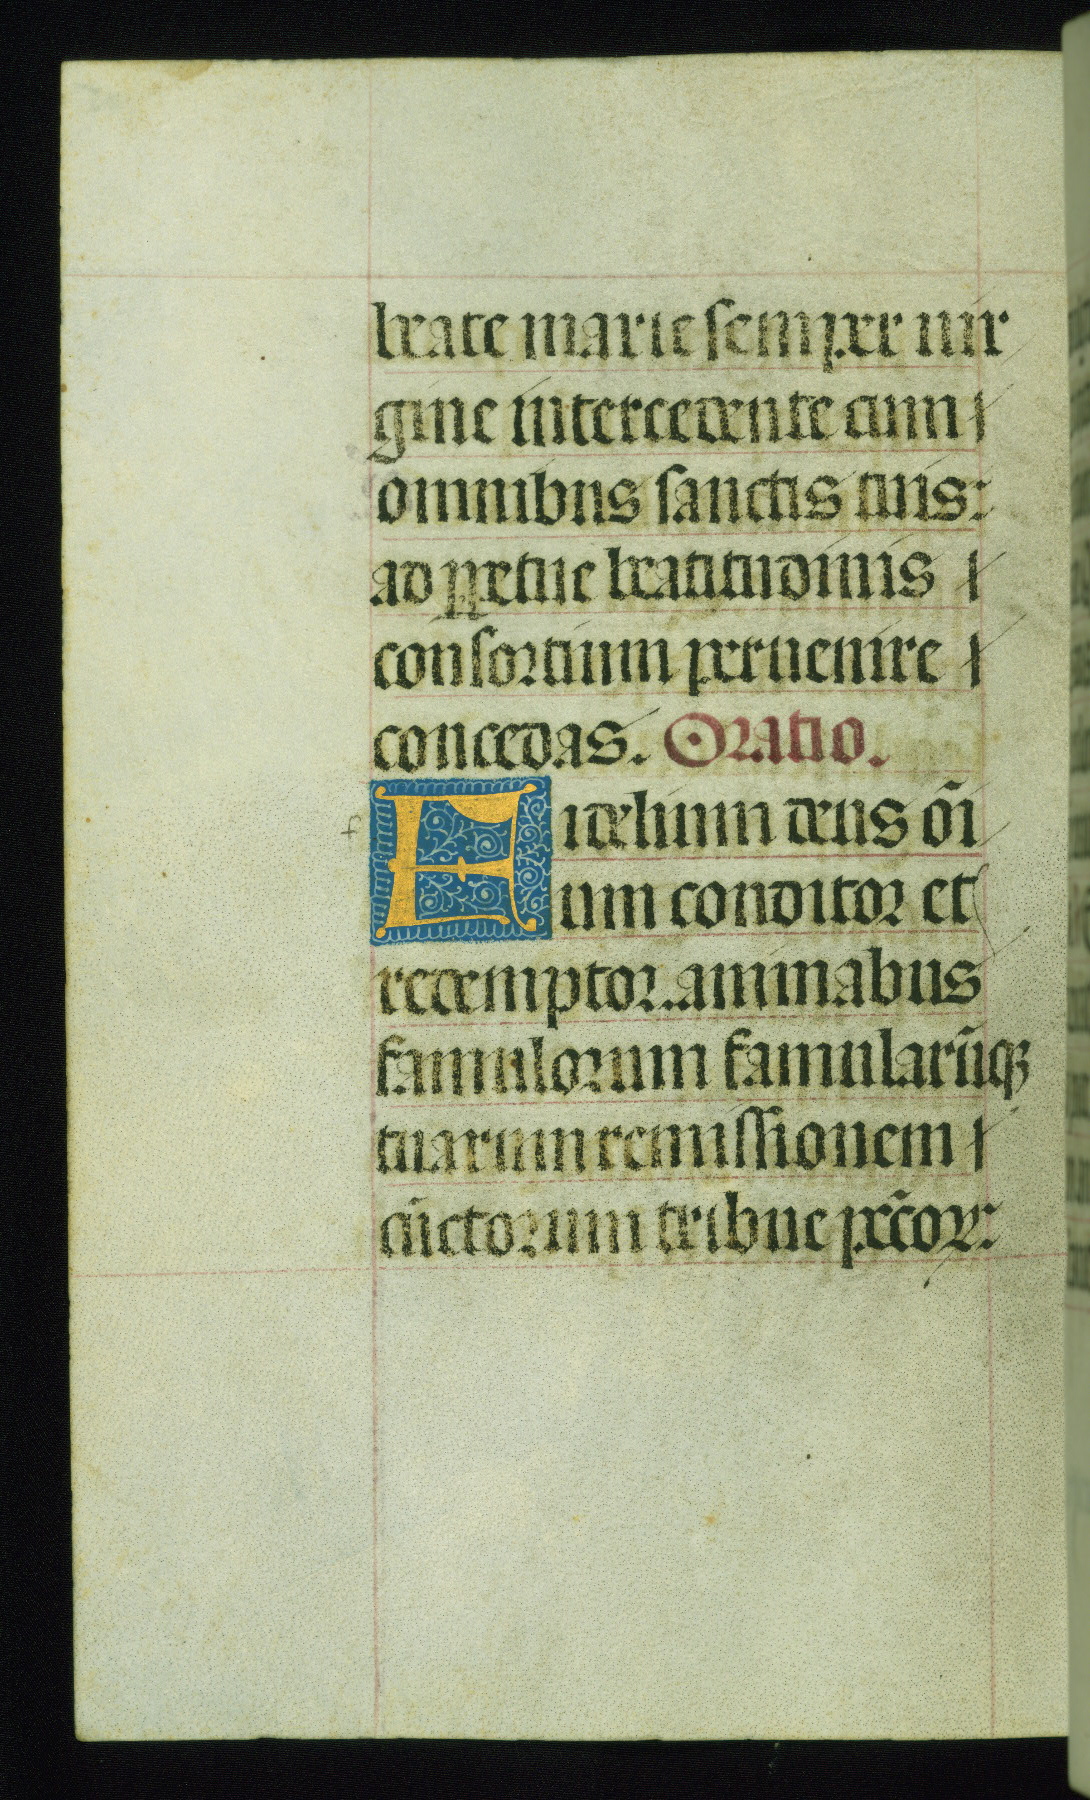 beate marie semper uir
gine intercedente cum
omnibus sanctis tuis:
ad ꝑpetue beatitudinis
consortium peruenire
concedas. Oratio.
f
Fidelium deus om̄i
um conditor et
redemptor. animabus
famulorum famularūqꝫ
tuarum remissionem
cūctorum tribue pcc̄oꝝ: